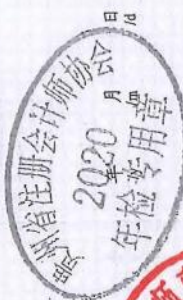 贵州省注册会计师协会
2020
年检专用章
年 月 日
/y /m /d